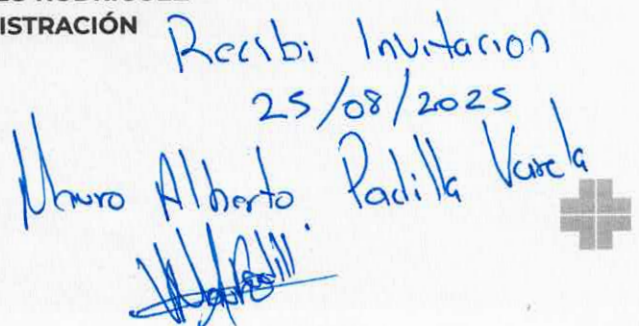 ISTRACIÓN
Recibi Invitacion
25/08/2025
Mauro Alberto Padilla Varela